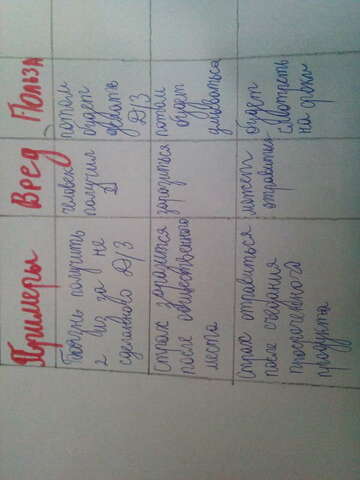 Примеры
Вред
Польза
Боязнь получить
2 из за не
сделанного Д/З
человек
получил
2
потом
будет
делать
Д/З
страх заразится
после общественного
места
заразиться
потом
будет
умываться
Страх отравиться
после съедания
просроченного
продукта
может
отравиться
будет
смотреть
на сроки